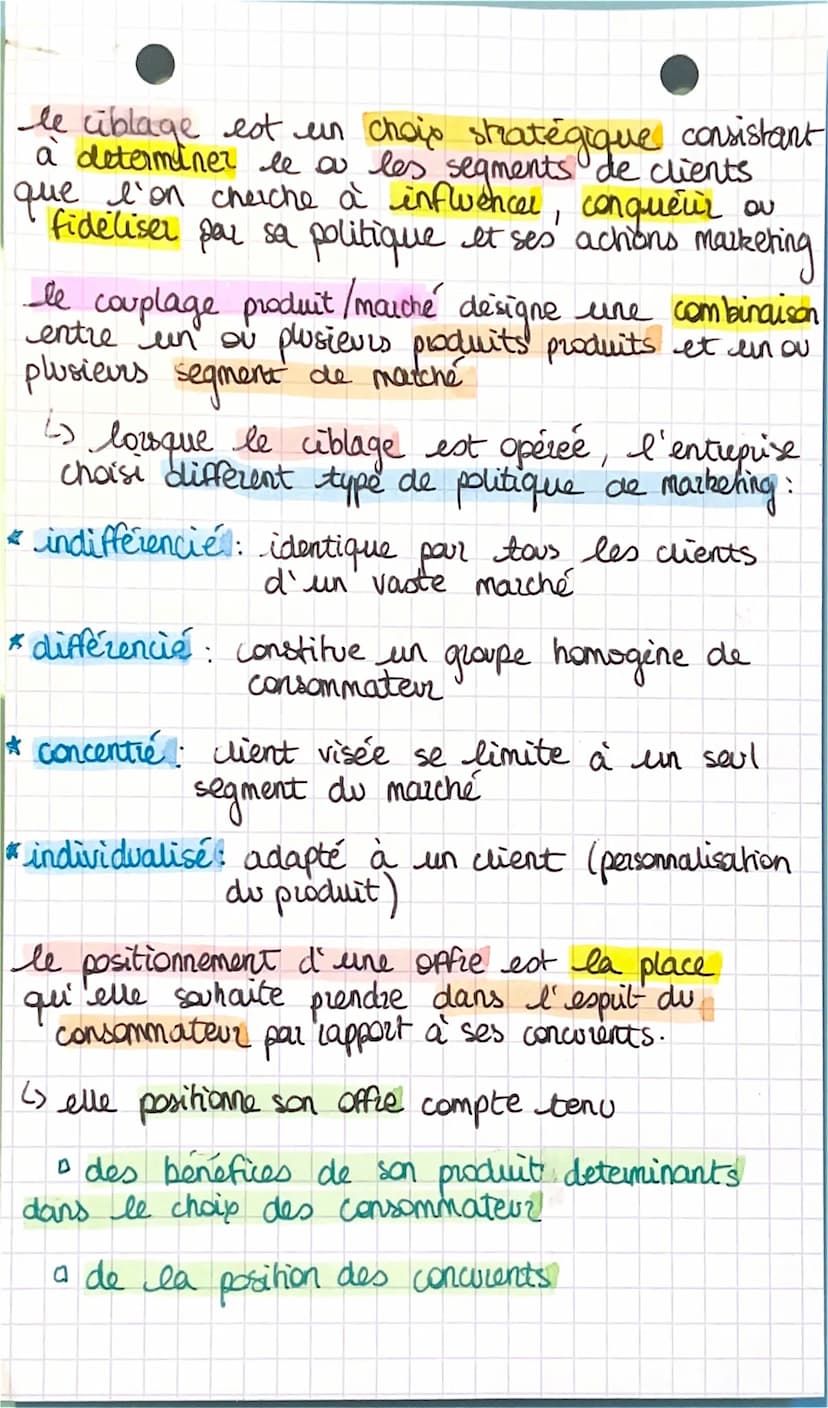 le ciblage est un choix stratégique consistant
à determiner le ou les segments de clients
que l'on cherche à influencer, conquérir ou
fidéliser par sa politique et ses actions marketing
le couplage produit/marché désigne une combinaison
entre un ou plusieurs produits produits et un ou
plusieurs segment de marché
↳ lorsque le ciblage est opéreé, l'entreprise
choisi différent type de politique de marketing :
* indifférencié : identique pour tous les clients
d'un vaste marché
* différencié : constitue un groupe homogène de
consommateur
* concentré : client visée se limite à un seul
segment du marché
* individualisé : adapté à un client (personnalisation
du produit)
le positionnement d'une offre est la place
qu'elle souhaite prendre dans l'esprit du
consommateur par rapport à ses concurents.
↳ elle positionne son offre compte tenu
▫ des bénéfices de son produit determinants
dans le choix des consommateur
▫ de la position des concurents